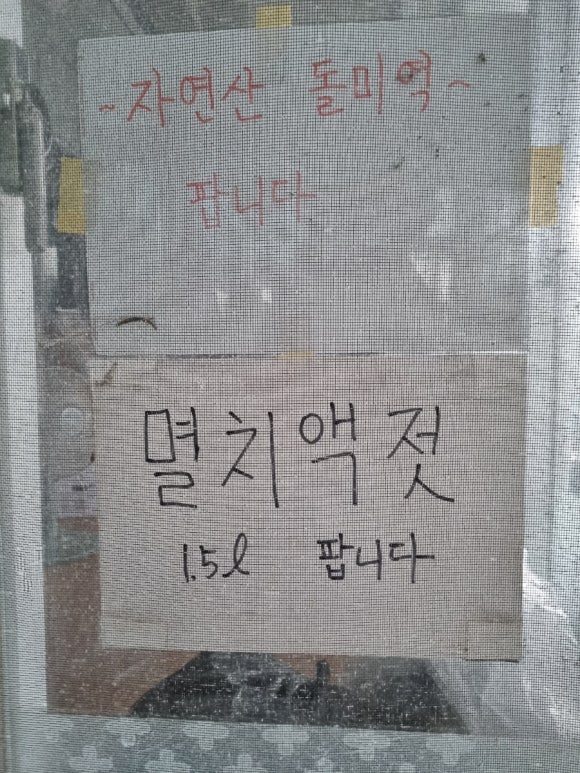 ~자연산 돌미역~
팝니다
멸치액젓
1.5ℓ 팝니다